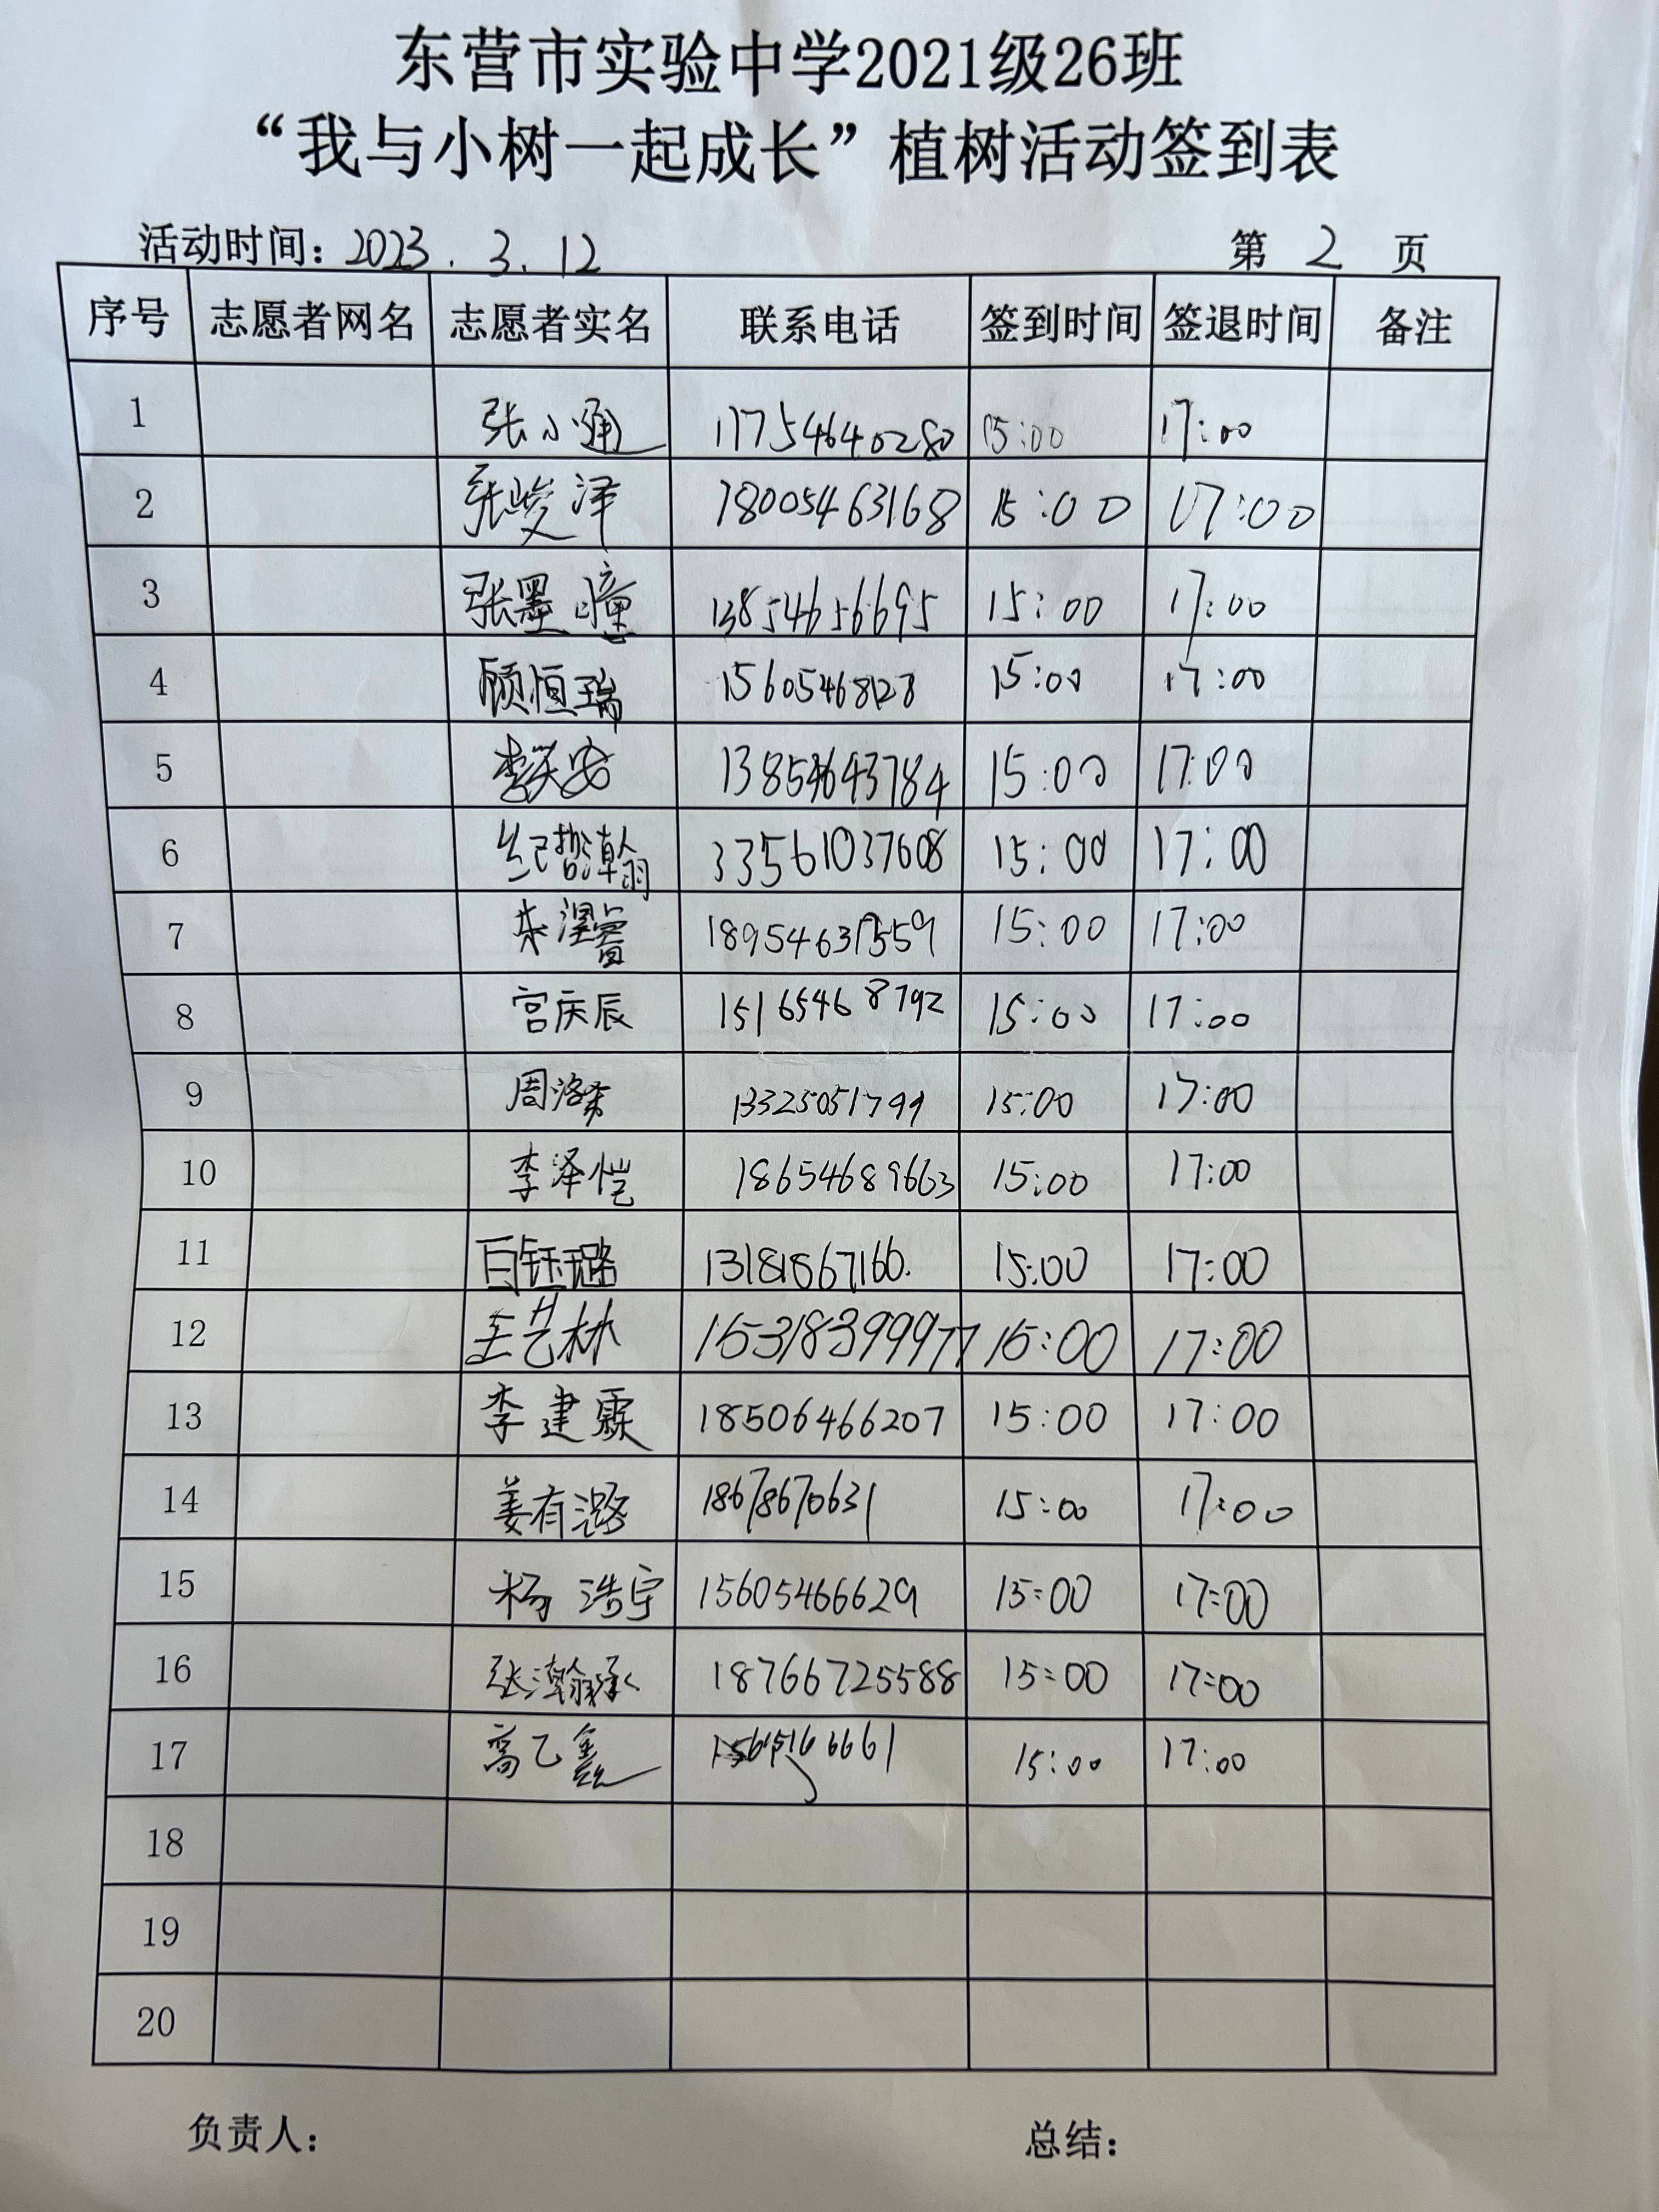 东营市实验中学2021级26班
“我与小树一起成长”植树活动签到表
活动时间：2023.3.12 第 2 页
序号 志愿者网名 志愿者实名 联系电话 签到时间 签退时间 备注
1 张小通 17754640280 15:00 17:00
2 张峻泽 18005463168 15:00 17:00
3 张墨瞳 13854656695 15:00 17:00
4 顾恒瑞 15605468128 15:00 17:00
5 李笑安 13854643784 15:00 17:00
6 纪哲瀚 33561037608 15:00 17:00
7 朱 18954631559 15:00 17:00
8 宫庆辰 15165468792 15:00 17:00
9 周洛希 13325051799 15:00 17:00
10 李泽恺 18654689663 15:00 17:00
11 白钰璐 13181867160. 15:00 17:00
12 王艺林 15318399977 15:00 17:00
13 李建霖 18506466207 15:00 17:00
14 姜有潞 18678670631 15:00 17:00
15 杨浩宇 15605466629 15:00 17:00
16 张瀚承 18766725588 15:00 17:00
17 高乙鑫 15:00 17:00
18
19
20
负责人： 总结：